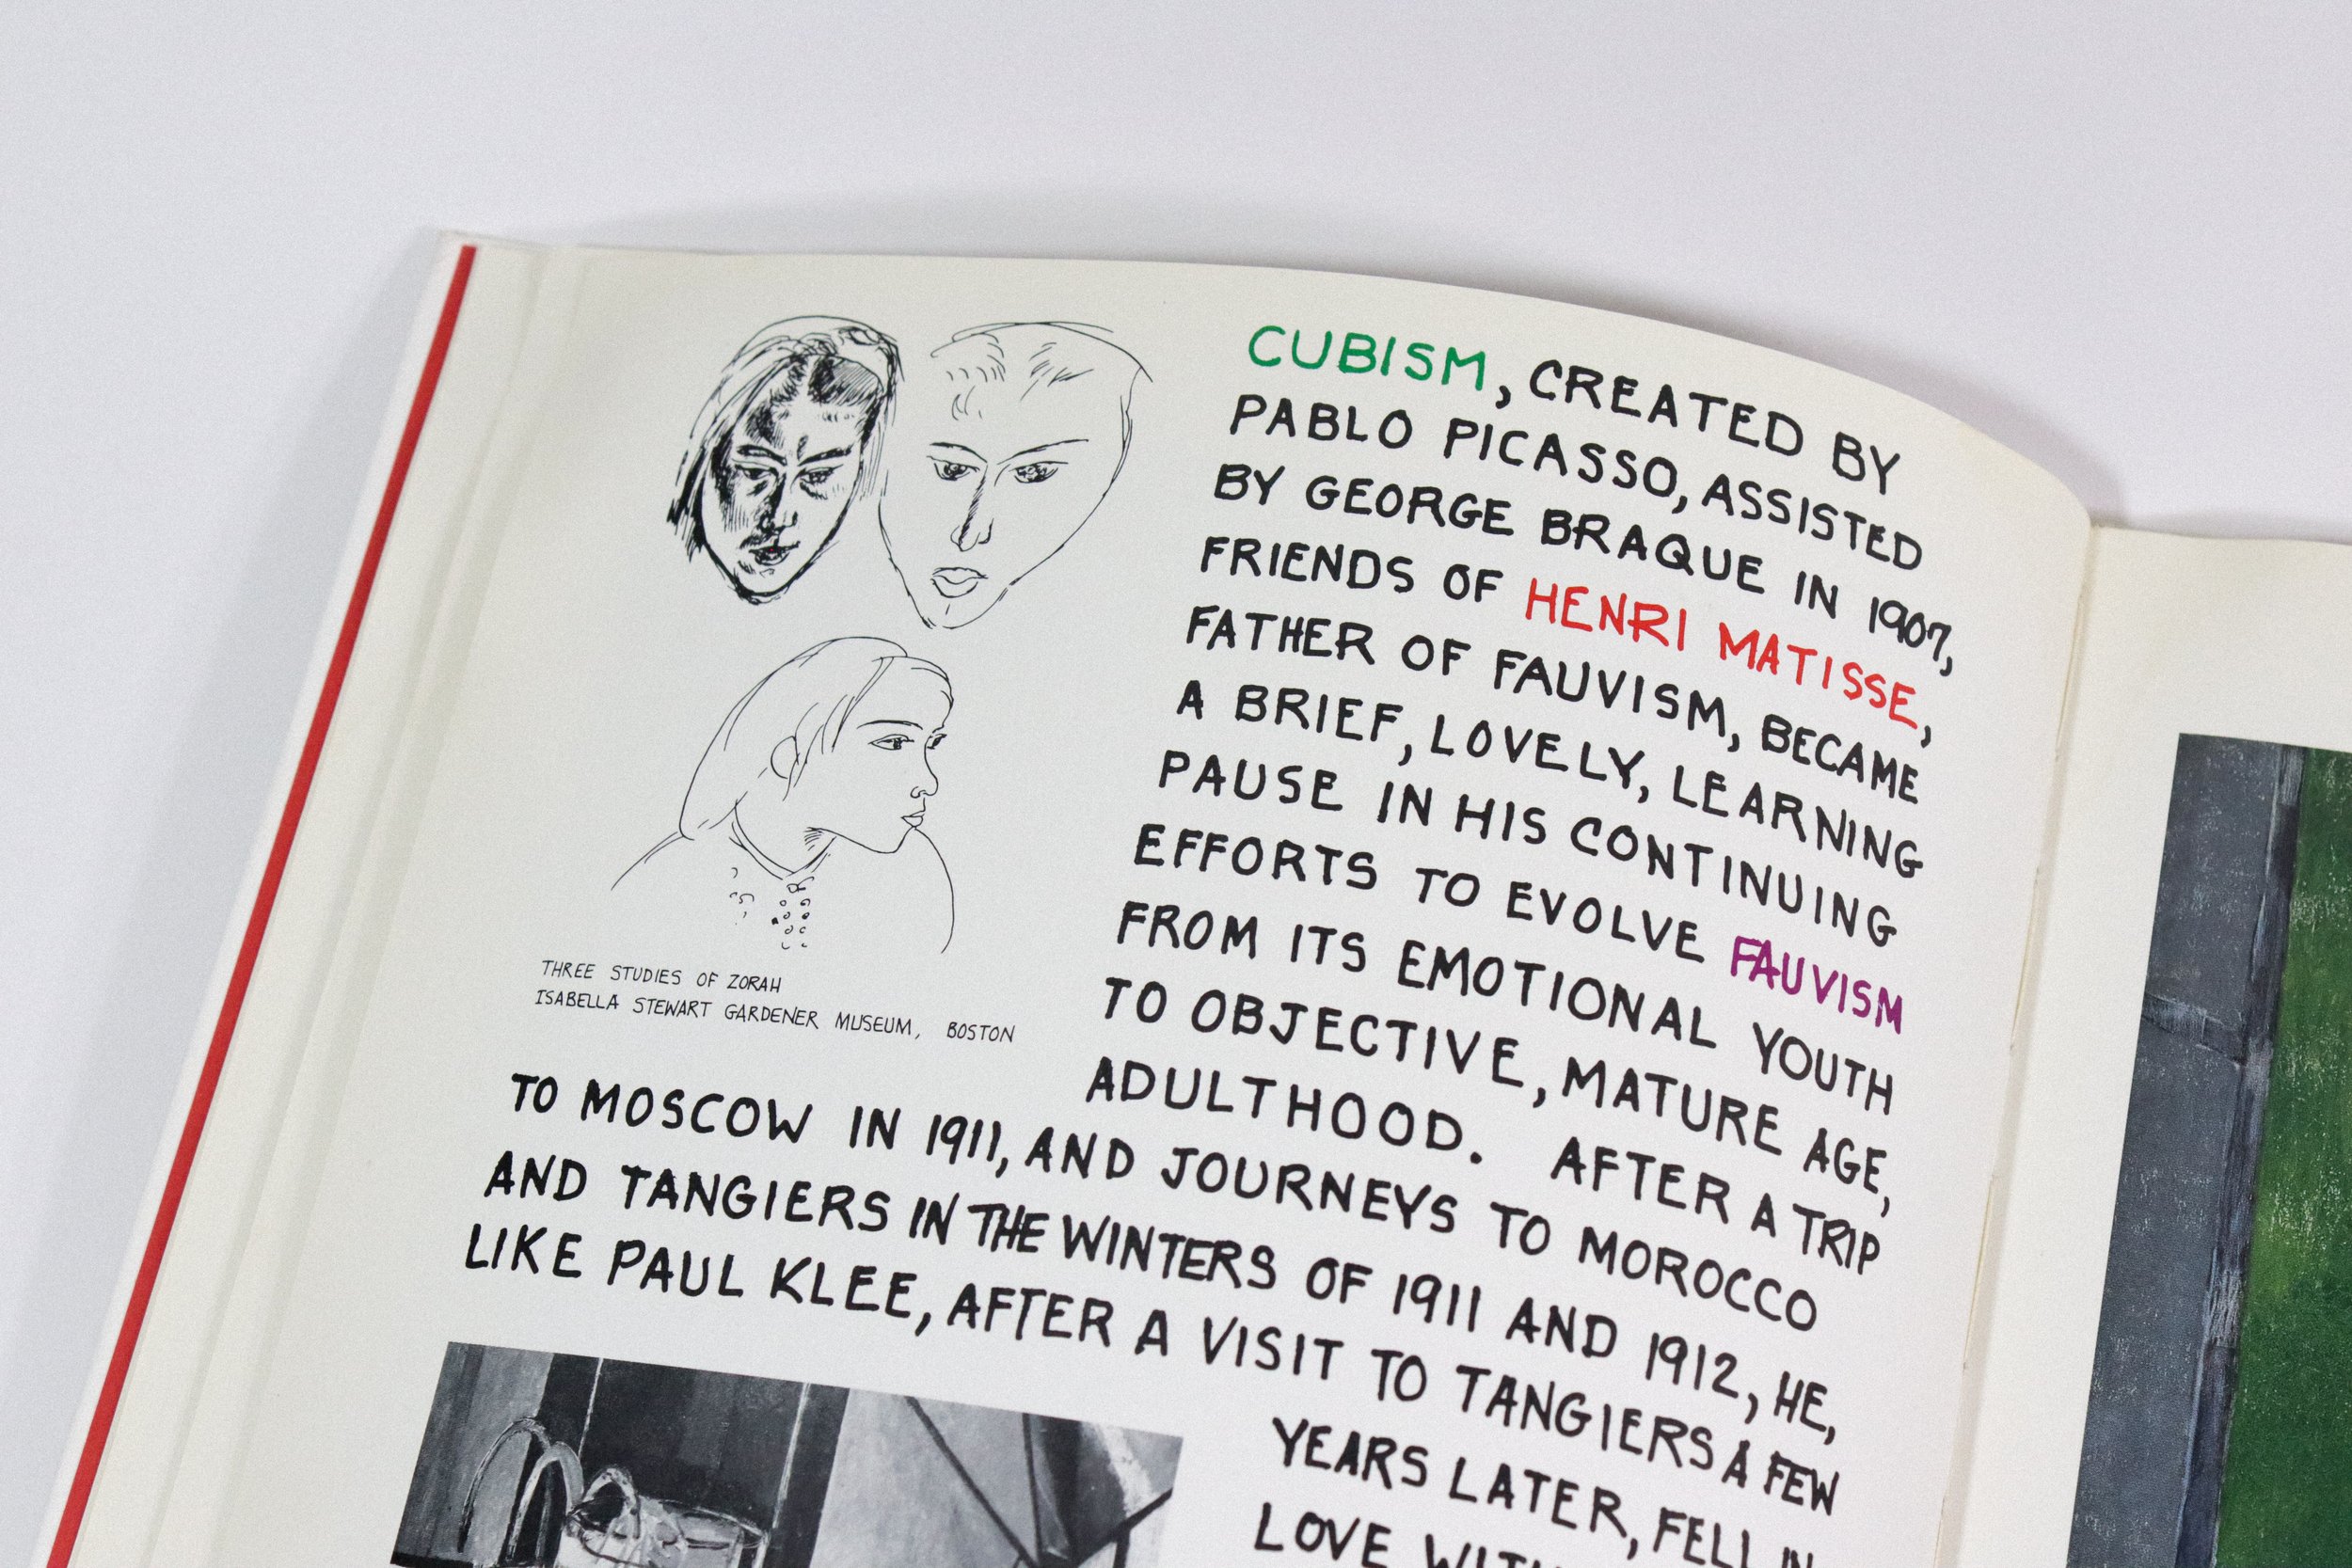 CUBISM, CREATED BY
PABLO PICASSO, ASSISTED
BY GEORGE BRAQUE IN 1907,
FRIENDS OF HENRI MATISSE,
FATHER OF FAUVISM, BECAME
A BRIEF, LOVELY, LEARNING
PAUSE IN HIS CONTINUING
EFFORTS TO EVOLVE FAUVISM
FROM ITS EMOTIONAL YOUTH
TO OBJECTIVE, MATURE AGE,
ADULTHOOD. AFTER A TRIP
THREE STUDIES OF ZORAH
ISABELLA STEWART GARDENER MUSEUM, BOSTON
TO MOSCOW IN 1911, AND JOURNEYS TO MOROCCO
AND TANGIERS IN THE WINTERS OF 1911 AND 1912, HE,
LIKE PAUL KLEE, AFTER A VISIT TO TANGIERS A FEW
YEARS LATER, FELL IN
LOVE